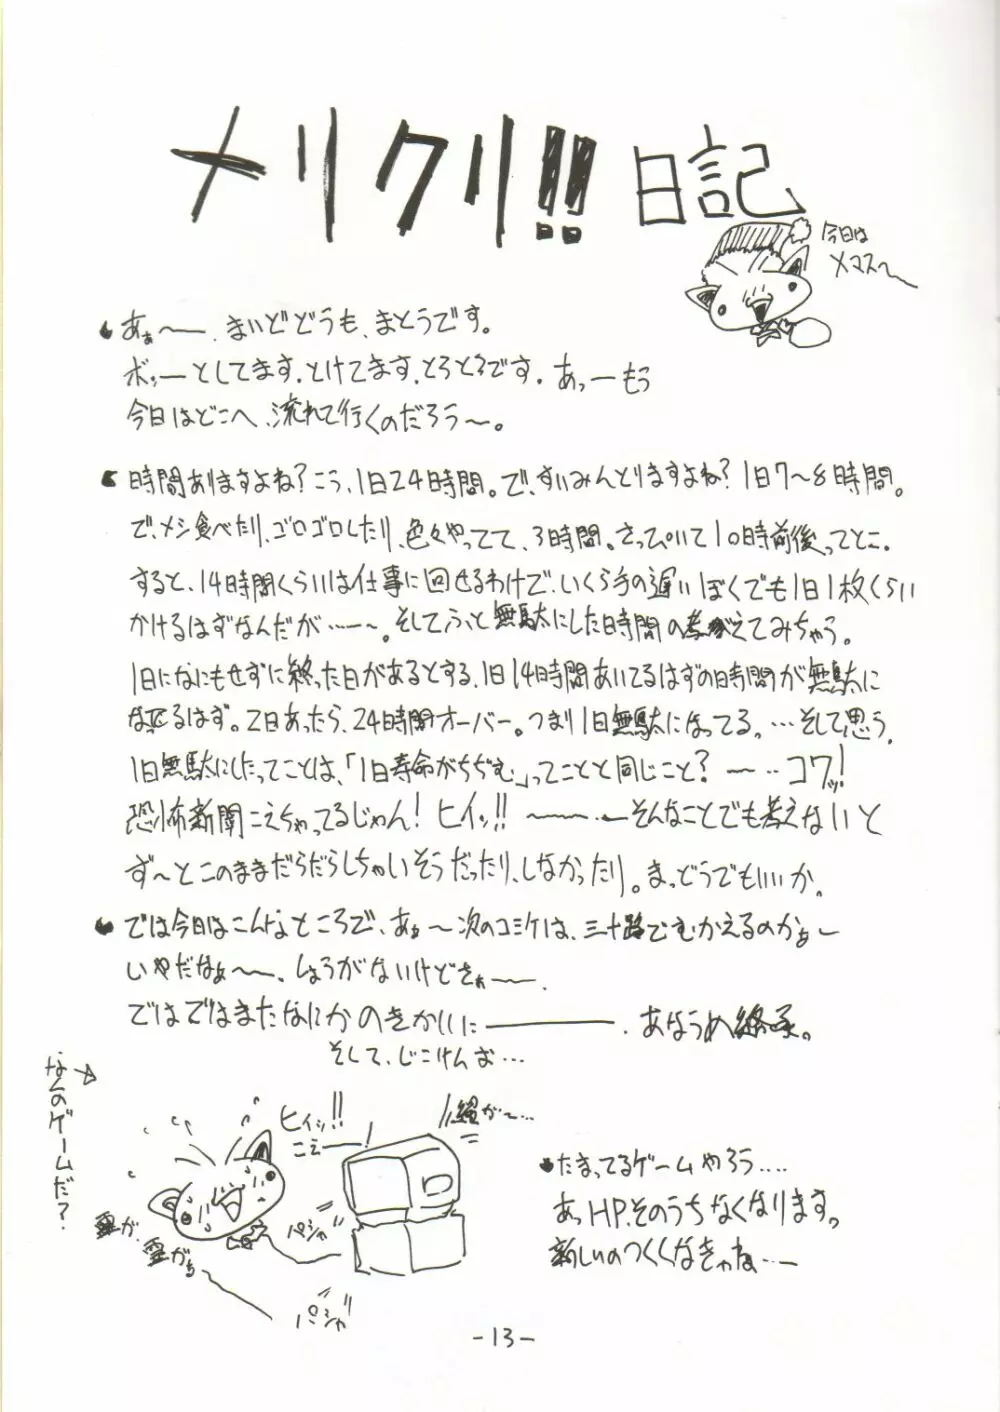 メリクリ!! 日記
今日は
メマス〜
あぁ〜〜. まいどどうも、まとうです。
ボッーとしてます.とけてます.とろとろです. あっーもう
今日はどこへ、流れて行くのだろう〜。
時間ありますよね?こう、1日24時間。で、すいみんとりますよね?1日7〜8時間。
で、メシ食べたり、ゴロゴロしたり、色々やってて、3時間。さっぴいて10時前後ってとこ。
すると、14時間くらいは仕事に回せるわけで、いくら手の遅いぼくでも1日1枚くらい
かけるはずなんだが…ー〜。そしてふと無駄にした時間の考がえてみちゃう。
1日になにもせずに終った日があるとする、1日14時間あいてるはずの時間が無駄に
なってるはず。2日あったら、24時間オーバー。つまり1日無駄になってる。…そして思う.
1日無駄にしたってことは、「1日寿命がちぢむ」ってことと同じこと? 〜‥コワッ!
恐怖新聞こえちゃってるじゃん! ヒイッ!! 〜〜.ーそんなことでも考えないと
ず〜とこのままだらだらしちゃいそうだったり、しなかったり。まっどうでもいいか。
では今日はこんなところで、あぁ〜次のコミケは、三十路でむかえるのかぁ〜
いやだなぁ〜〜. しょうがないけどさぁ〜〜.
ではではまたなにかのきかいに―――. あなうめ終了。
そして、じこけんお…
なんのゲームだ?
ヒイッ!!
こえー
霊が、
霊がぁ
パシャ
パシャ
たまってるゲームやろう‥‥
あっHP.そのうちなくなります。
新しいのつくんなきゃね…ー
-13-